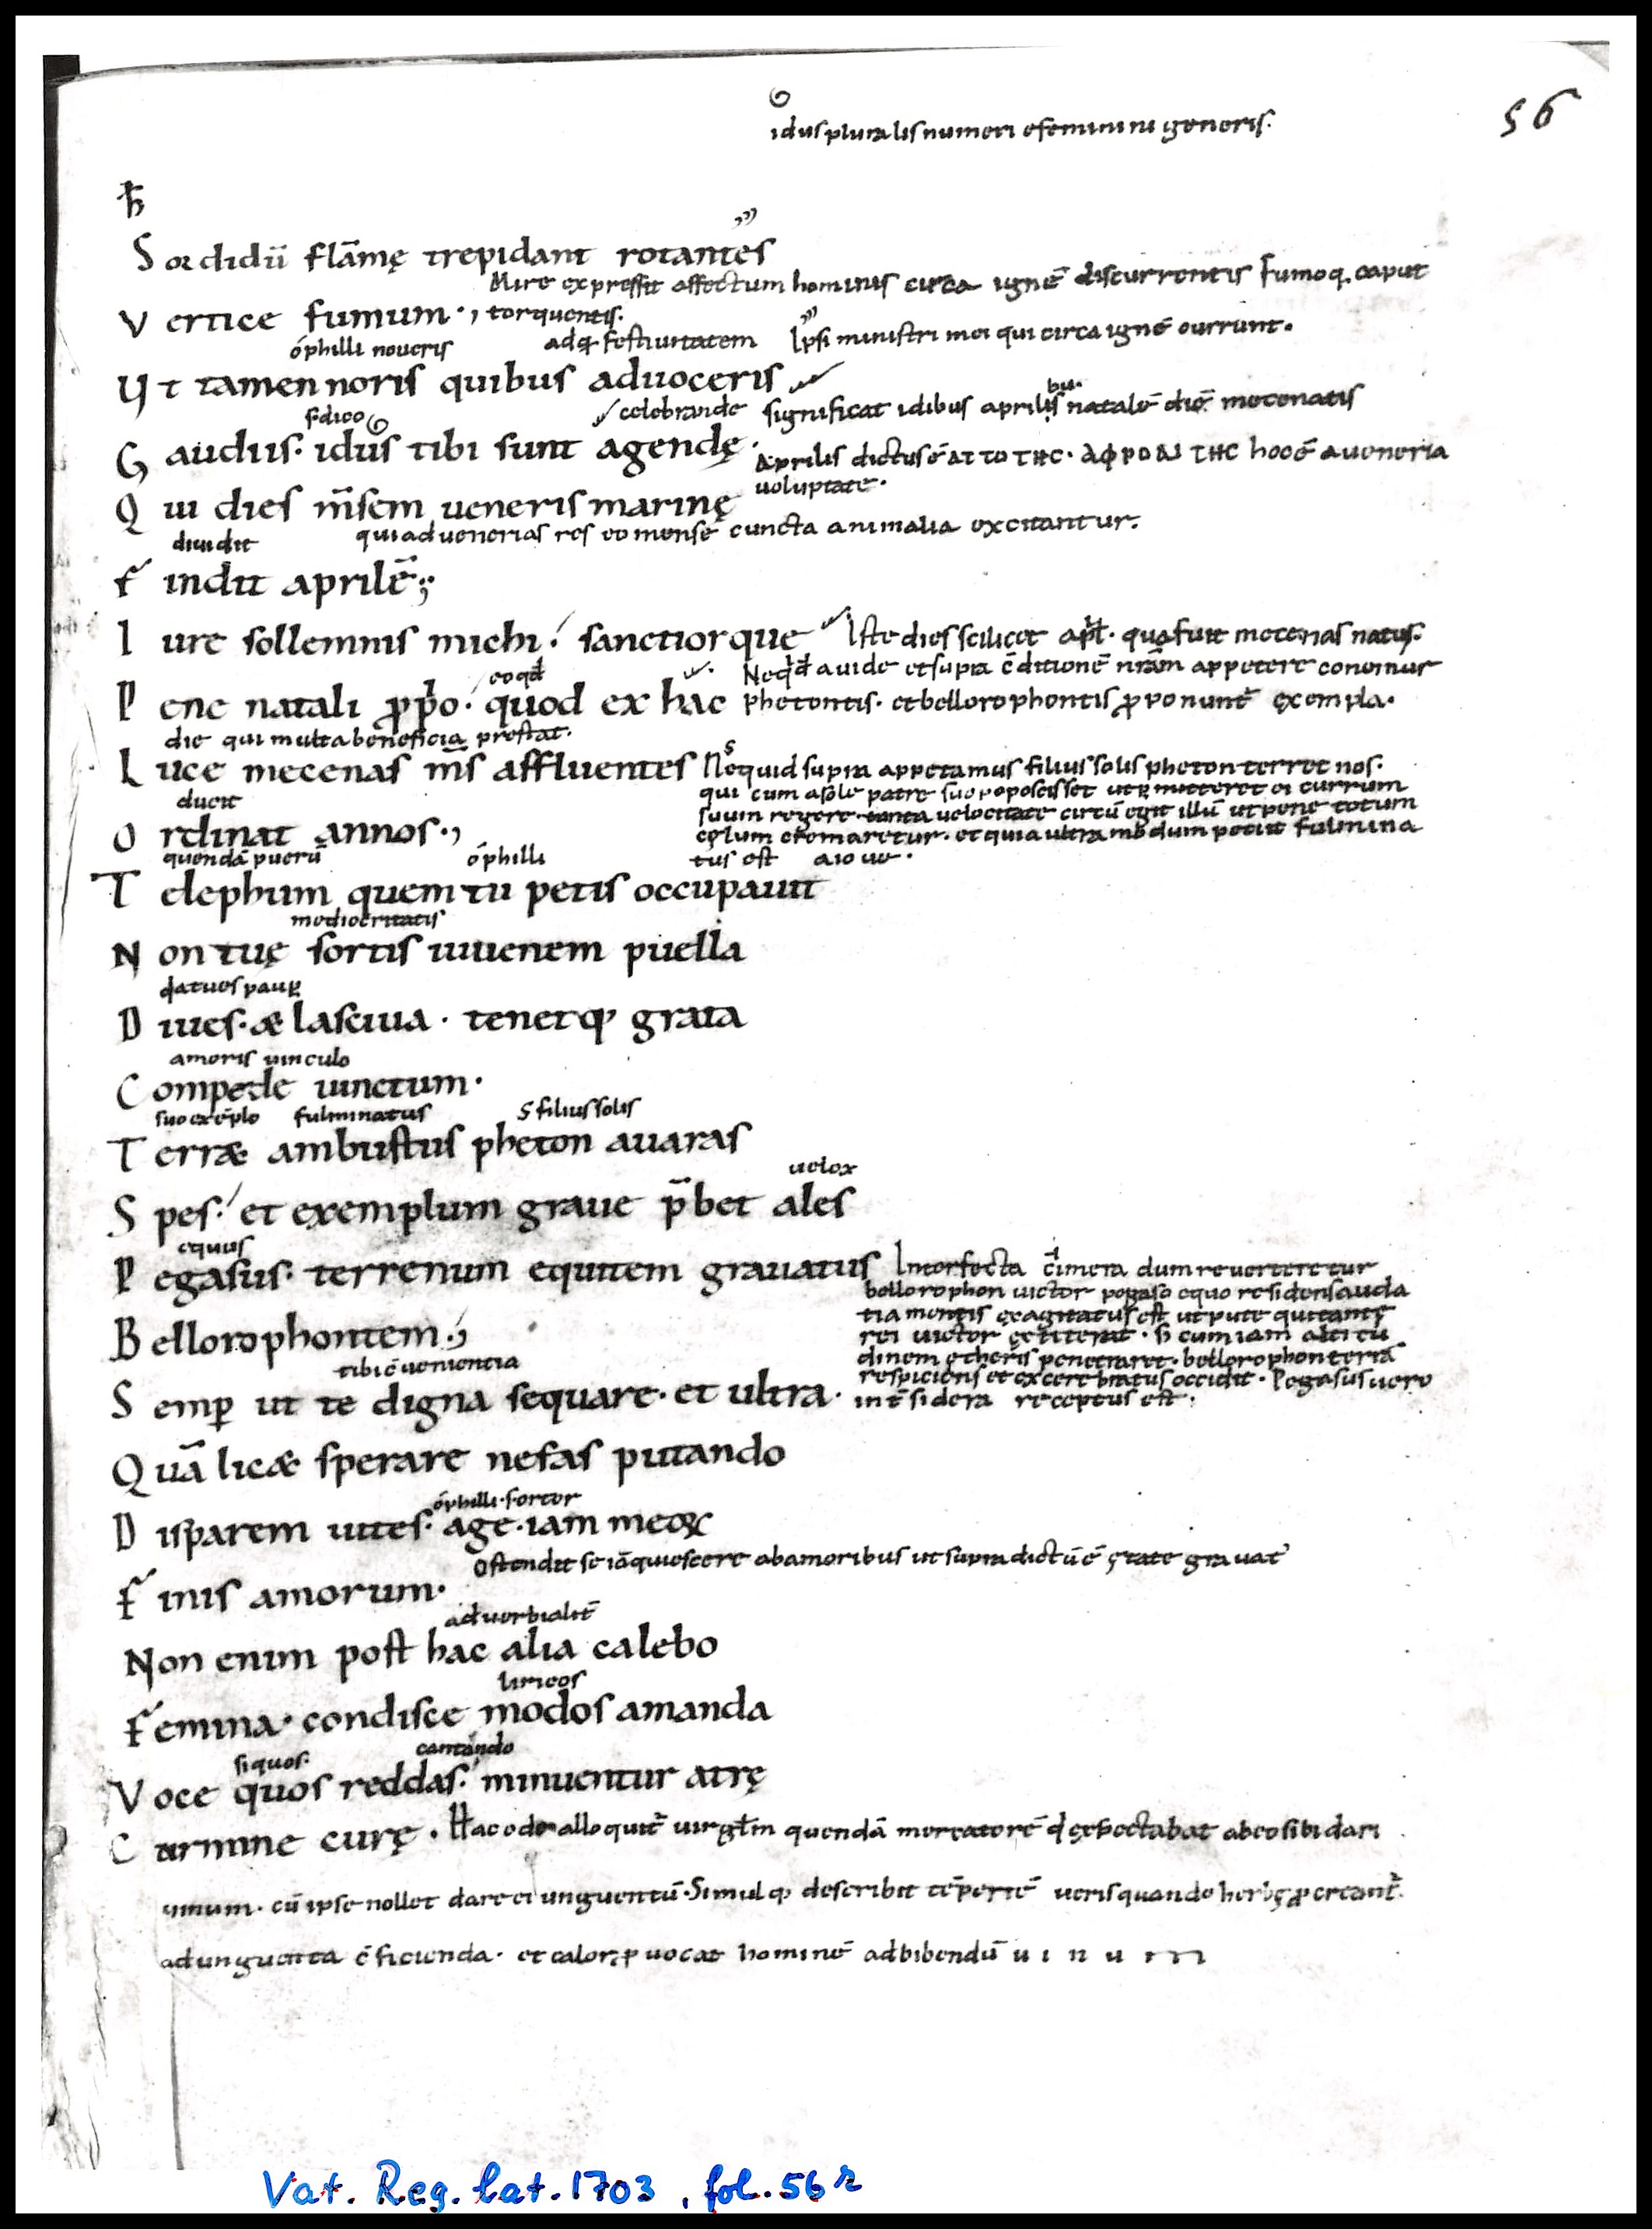 idus pluralis numeri e feminini generis.
56
ħ
Sordidū flāmę trepidant rotantes
Mire expressit affectum hominis circa ignē discurrentis fumoq. caput
Vertice fumum. torquentis.
óphilli noueris adq festiuitatem Ipsi ministri mei qui circa ignē currunt.
Ut tamen noris quibus aduoceris
s.dico celebrande significat idibus aprilis natalē diē mecenatis
bu.
Gaudiis. idus tibi sunt agendę.
Aprilis dictus ē ΑΠΟ ΤΗC. ΑΦΡΟΔΙΤΗC hoc ē a ueneria
uoluptate.
Qui dies m̄sem ueneris marinę
diuidit quia d uenerias res eo mense cuncta animalia excitantur.
Findit aprilē;
Iure sollemnis michi. sanctiorque Iste dies scilicet apł. qua fuit mecenas natus.
eo qđ Neqđ auide et supra c̄ditionē nr̄am appetere conemur
Pene natali p̱p̱o. quod ex hac phetontis. et bellorophontis p̱ponunt̄ exempla.
die qui multa beneficia prestat.
Luce mecenas m̄s affluentes Nequid supra appetamus filius solis pheton terret nos.
s
qui cum a sole patre suo poposcisset ut p̱mitteret ei currum
ducit
suum regere. tanta uelocitate circū egit illū ut pene totum
Ordinat annos., cęlum cremaretur. et quia ultra modum petiit fulmina
quendā puerū óphilli tus est a ioue.
Telephum quem tu petis occupauit
mediocritatis
Non tuę sortis iuuenem puella
qa tu es paup̱
Diues. æ lasciua. tenetq. grata
amoris uinculo
Compede iunctum.
suo exēplo fulminatus s filius solis
Terræ ambustus pheton auaras
uelox
Spes. et exemplum graue p̄bet ales
equus
Pegasus. terrenum equitem grauatus Interfecta cimera dum reuerteretur
bellorophon uictor pegaso equo residens auda
tia mentis exagitatus est utpute qui tantę
Bellorophontem., rei uictor extiterat. s cum iam altitu
dinem ętheris penetraret. bellorophon terrā
tibi c̄uenientia
respiciens et excerebratus occidit. Pegasus uero
Semp̱ ut te digna sequare. et ultra. int̄ sidera receptus est.
Quā licæ sperare nefas putando
óphilli. fortor
Disparem uites. age. iam meoꝝ
Ostendit se iā quiescere ab amoribus ut supra dictū ē ętate grauat̄
Finis amorum.
aduerbialit̄
Non enim post hac alia calebo
liricos
Femina. condisce modos amanda
si quos. cantando
Voce quos reddas. minuentur atrę
Carmine curę. Hac ode alloquit̄ uirgł̄m quendā mercatorē q̇ exspectabat ab eo sibi dari
uinum. cū ipse nollet dare ei unguentū. Simulq. describit tēperiē ueris quando herbę p̱creant̄.
ad unguenta c̄ficienda. et calor p̱uocat hominē ad bibendū u i n u m
Vat. Reg. lat. 1703, fol. 56 r